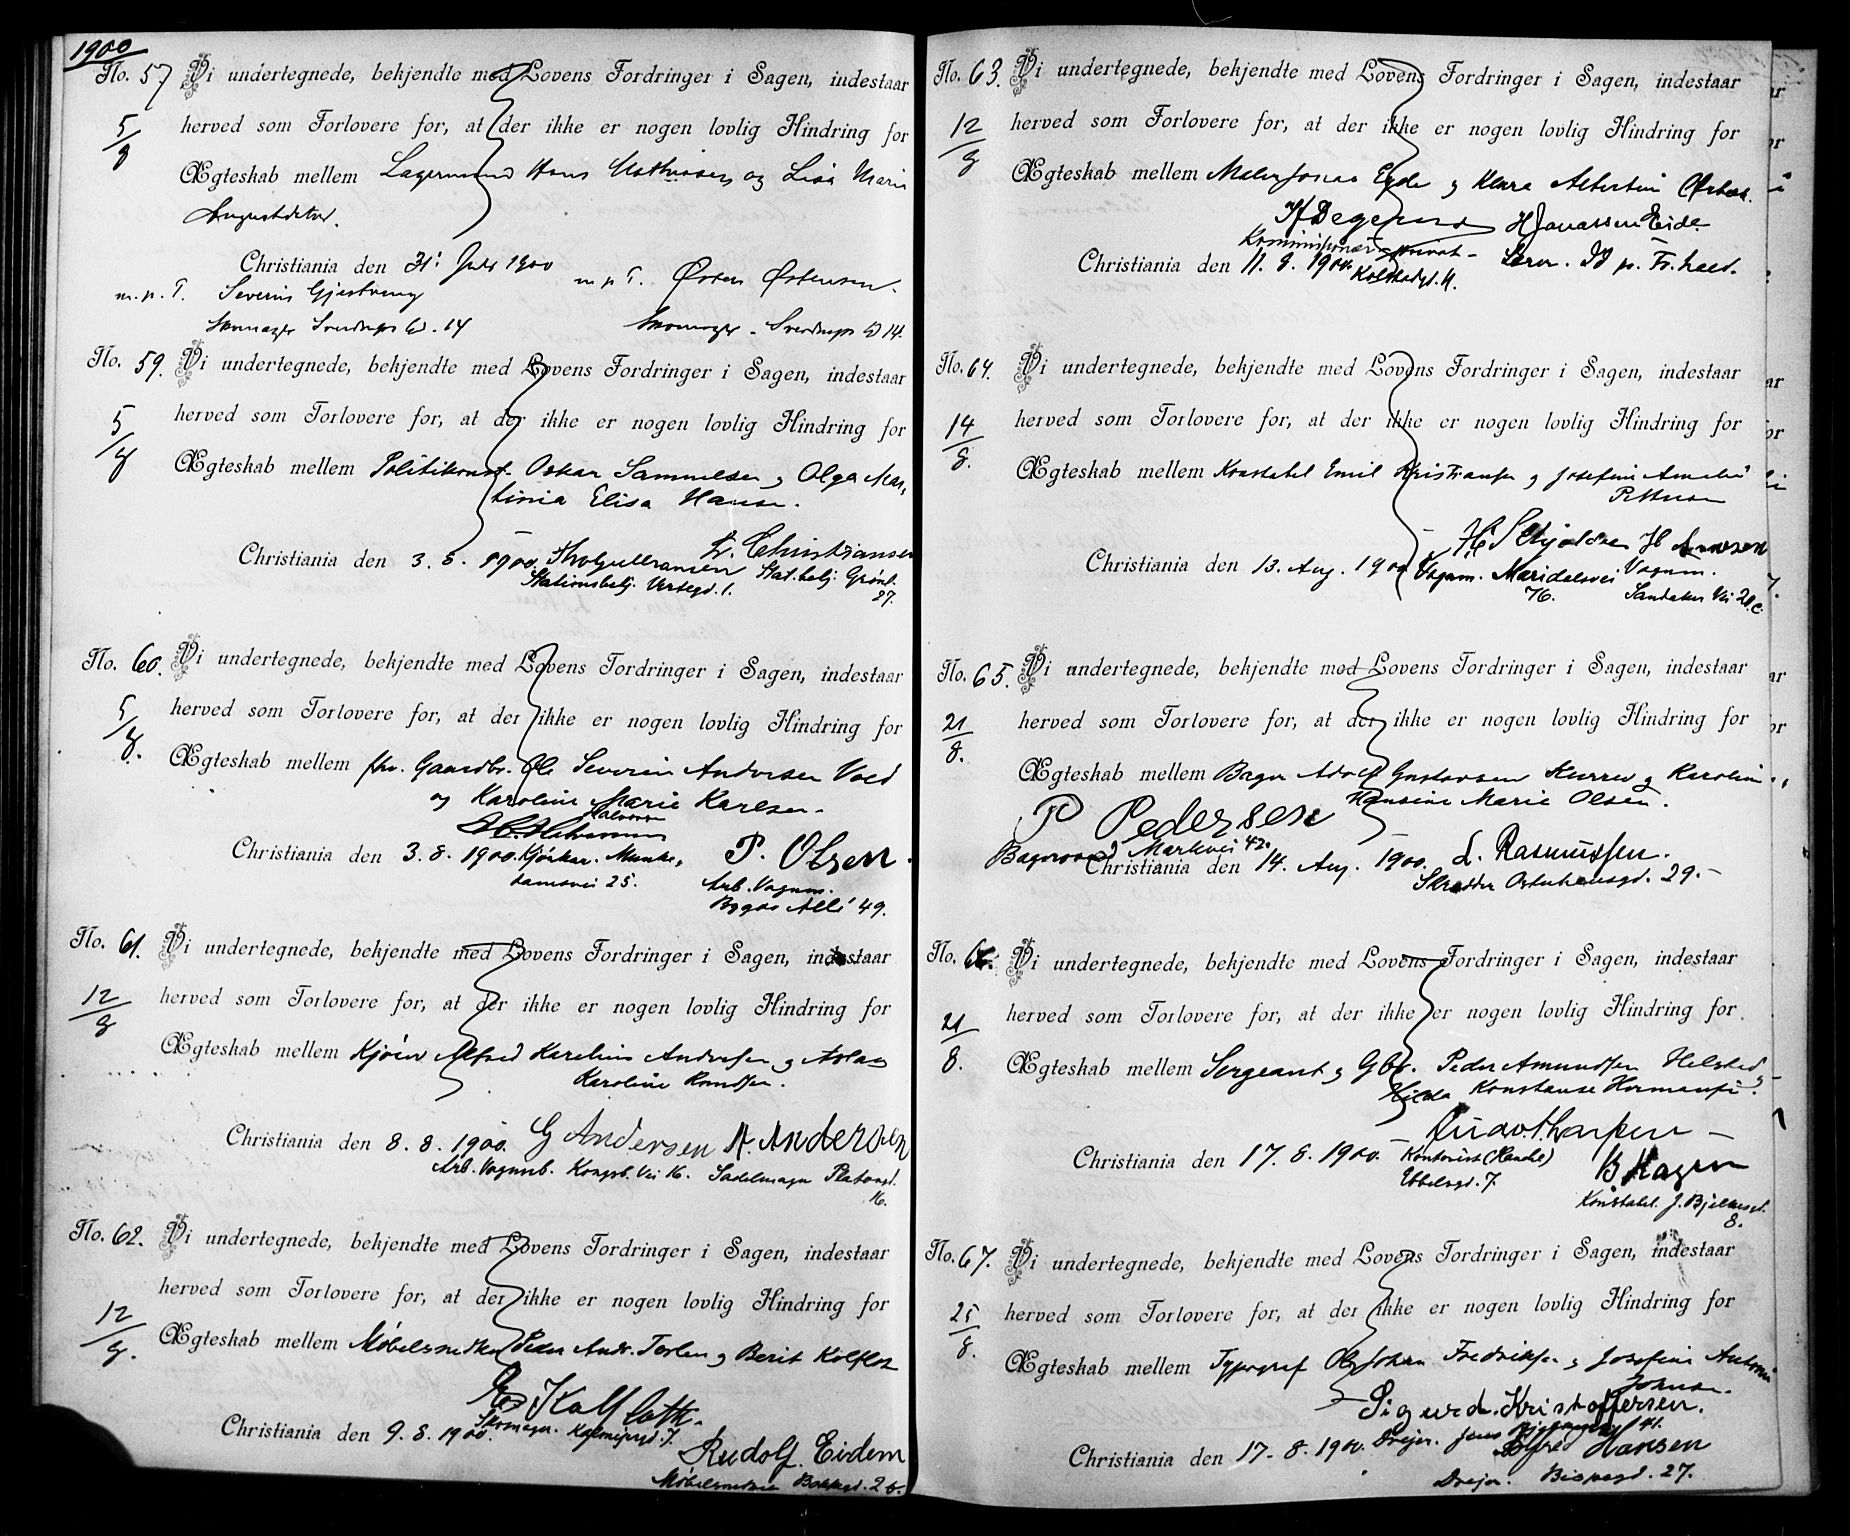 1900
No. 57 Vi undertegnede, bekjendte med Lovens Fordringer i Sagen, indestaar
5/8 herved som Forlovere for, at der ikke er nogen lovlig Hindring for
Ægteskab mellem Lagermand Hans Mathiasen og Lisa Marie
Augustdatter.
Christiania den 31' Juli 1900
m. p. T. Severin Gjestvang
m p T. Østen Østensen.
Skomager Sverdrups G. 14
Skomager. Sverdrups G 14.
No. 59. Vi undertegnede, bekjendte med Lovens Fordringer i Sagen, indestaar
5/8 herved som Forlovere for, at der ikke er nogen lovlig Hindring for
Ægteskab mellem Politikonst. Oskar Samuelsen og Olga Mar-
tinia Elisa Hansen.
Christiania den 3. 8. 1900. Chr. Christiansen
Stationsbetj. Vertsgd. 1. Stat.betj. Grønl.
27.
No. 60. Vi undertegnede, bekjendte med Lovens Fordringer i Sagen, indestaar
5/8. herved som Forlovere for, at der ikke er nogen lovlig Hindring for
Ægteskab mellem fhv. Gaardbr. Ole Severin Andersen Vold
og Karoline Marie Karlsen.
Halvorsen
Christiania den 3. 8. 1900. Kjørkar. Munke- P. Olsen.
damsvei 25. Arb. Vognm.
Bygdø Allé 49.
No. 61. Vi undertegnede, bekjendte med Lovens Fordringer i Sagen, indestaar
12/8 herved som Forlovere for, at der ikke er nogen lovlig Hindring for
Ægteskab mellem Alfred Karelius Andersen og
Karoline
Christiania den 8. 8. 1900. G Andersen A. Andersen
Arb. Vognmb. Kongsb. Vei 16. Sadelmager Platousgd.
16.
No. 62. Vi undertegnede, bekjendte med Lovens Fordringer i Sagen, indestaar
12/8. herved som Forlovere for, at der ikke er nogen lovlig Hindring for
Ægteskab mellem Møbelsnedker Peder Andr. og Berit Kolflot
E. Kolfloth.
Christiania den 9. 8. 1900. Skomager.
Rudolf Eidem
Møbelsnedker Bakkegd. 26.
No. 63. Vi undertegnede, bekjendte med Lovens Fordringer i Sagen, indestaar
12/8 herved som Forlovere for, at der ikke er nogen lovlig Hindring for
Ægteskab mellem Maler Jonas Eyde og Klara Albertine
H Jonassen Eide
Kommissionær
Christiania den 11. 8. 1900.
No. 64. Vi undertegnede, bekjendte med Lovens Fordringer i Sagen, indestaar
14/8. herved som Forlovere for, at der ikke er nogen lovlig Hindring for
Ægteskab mellem Konstabel Emil Kristiansen og Josefine Amalie
Petterson
H Skjølden H Arnesen
Christiania den 13. Aug. 1900. Vognm. Maridalsvei Vognm.
76. Sandaker Vei 20.c.
No. 65. Vi undertegnede, bekjendte med Lovens Fordringer i Sagen, indestaar
21/8. herved som Forlovere for, at der ikke er nogen lovlig Hindring for
Ægteskab mellem Bager Adolf Gustavsen og Karoline
Hansine Marie Olsen.
P Pedersen
Markvei 42.
Christiania den 14. Aug. 1900. L. Rasmussen.
Skrædder 29.
No. 66. Vi undertegnede, bekjendte med Lovens Fordringer i Sagen, indestaar
21/8. herved som Forlovere for, at der ikke er nogen lovlig Hindring for
Ægteskab mellem Sergeant og Gbr. Peder Amundsen Helstad og
Hilda Konstanse Hermansen.
Christiania den 17. 8. 1900. Kontorist (Handel) B Hagen
Ebbelsgd. 7.
Konstabel. J. Bjelkesgd.
8.
No. 67. Vi undertegnede, bekjendte med Lovens Fordringer i Sagen, indestaar
25/8. herved som Forlovere for, at der ikke er nogen lovlig Hindring for
Ægteskab mellem Typograf Ole Johan Fredriksen og Josefine Antonie
Johnsen.
Sigurd. Kristoffersen.
Drejer. Jens Bjelkesgd 41.
Christiania den 17. 8. 1900. Alfred Hansen
Drejer. Bispegd. 27.